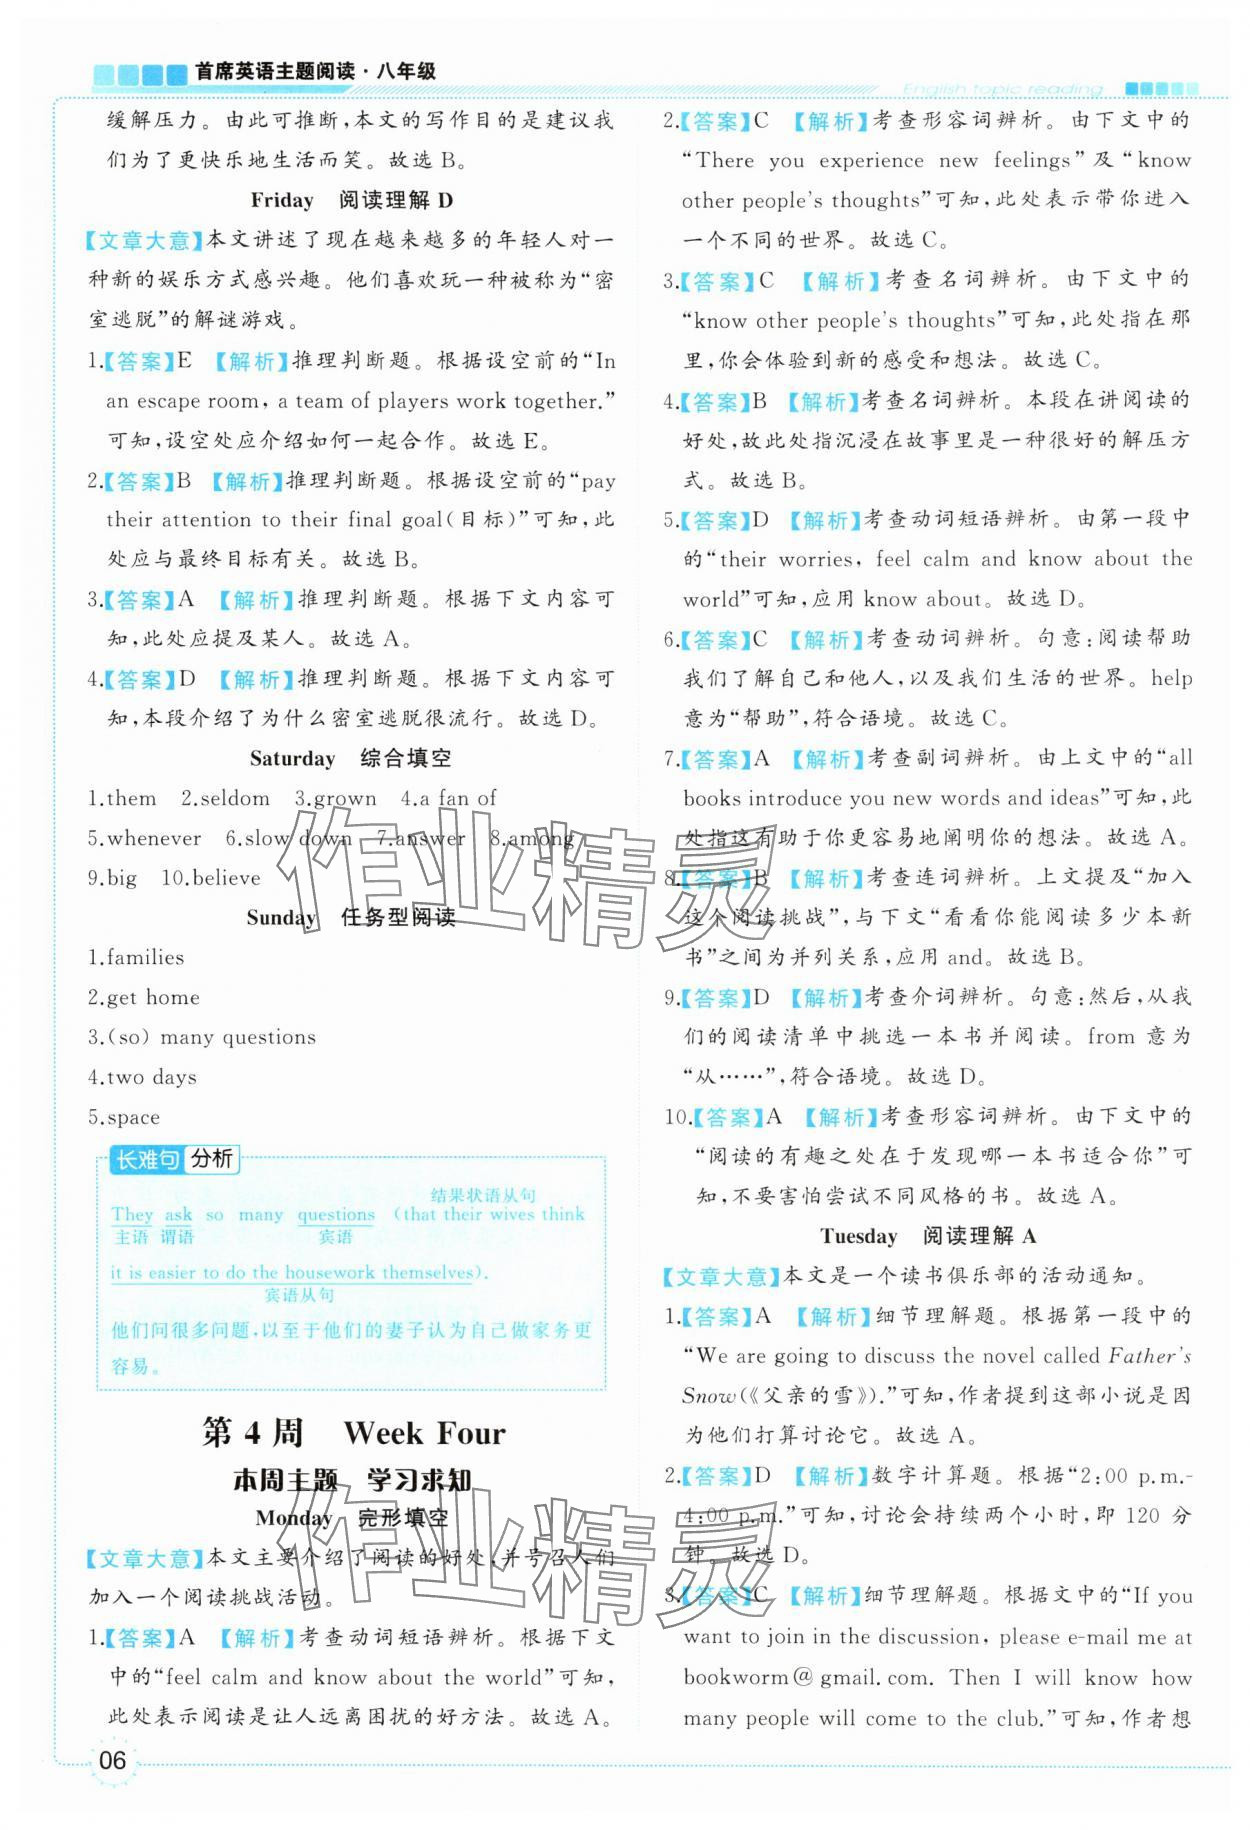 首席英语主题阅读·八年级
English topic reading
缓解压力。由此可推断,本文的写作目的是建议我
们为了更快乐地生活而笑。故选 B。
Friday 阅读理解 D
【文章大意】本文讲述了现在越来越多的年轻人对一
种新的娱乐方式感兴趣。他们喜欢玩一种被称为“密
室逃脱”的解谜游戏。
1.【答案】E 【解析】推理判断题。根据设空前的“In
an escape room, a team of players work together.”
可知,设空处应介绍如何一起合作。故选 E。
2.【答案】B 【解析】推理判断题。根据设空前的“pay
their attention to their final goal(目标)”可知,此
处应与最终目标有关。故选 B。
3.【答案】A 【解析】推理判断题。根据下文内容可
知,此处应提及某人。故选 A。
4.【答案】D 【解析】推理判断题。根据下文内容可
知,本段介绍了为什么密室逃脱很流行。故选 D。
Saturday 综合填空
1.them 2.seldom 3.grown 4.a fan of
5.whenever 6.slow down 7.answer 8.among
9.big 10.believe
Sunday 任务型阅读
1.families
2.get home
3.(so) many questions
4.two days
5.space
长难句 分析
结果状语从句
They ask so many questions (that their wives think
主语 谓语 宾语
it is easier to do the housework themselves).
宾语从句
他们问很多问题,以至于他们的妻子认为自己做家务更
容易。
第 4 周 Week Four
本周主题 学习求知
Monday 完形填空
【文章大意】本文主要介绍了阅读的好处,并号召人们
加入一个阅读挑战活动。
1.【答案】A 【解析】考查动词短语辨析。根据下文
中的“feel calm and know about the world”可知,
此处表示阅读是让人远离困扰的好方法。故选 A。
06
2.【答案】C 【解析】考查形容词辨析。由下文中的
“There you experience new feelings”及“know
other people's thoughts”可知,此处表示带你进入
一个不同的世界。故选 C。
3.【答案】C 【解析】考查名词辨析。由下文中的
“know other people's thoughts”可知,此处指在那
里,你会体验到新的感受和想法。故选 C。
4.【答案】B 【解析】考查名词辨析。本段在讲阅读的
好处,故此处指沉浸在故事里是一种很好的解压方
式。故选 B。
5.【答案】D 【解析】考查动词短语辨析。由第一段中
的“their worries, feel calm and know about the
world”可知,应用 know about。故选 D。
6.【答案】C 【解析】考查动词辨析。句意:阅读帮助
我们了解自己和他人,以及我们生活的世界。help
意为“帮助”,符合语境。故选 C。
7.【答案】A 【解析】考查副词辨析。由上文中的“all
books introduce you new words and ideas”可知,此
处指这有助于你更容易地阐明你的想法。故选 A。
8.【答案】B 【解析】考查连词辨析。上文提及“加入
这个阅读挑战”,与下文“看看你能阅读多少本新
书”之间为并列关系,应用 and。故选 B。
9.【答案】D 【解析】考查介词辨析。句意:然后,从我
们的阅读清单中挑选一本书并阅读。from 意为
“从……”,符合语境。故选 D。
10.【答案】A 【解析】考查形容词辨析。由下文中的
“阅读的有趣之处在于发现哪一本书适合你”可
知,不要害怕尝试不同风格的书。故选 A。
Tuesday 阅读理解 A
【文章大意】本文是一个读书俱乐部的活动通知。
1.【答案】A 【解析】细节理解题。根据第一段中的
“We are going to discuss the novel called Father's
Snow(《父亲的雪》).”可知,作者提到这部小说是因
为他们打算讨论它。故选 A。
2.【答案】D 【解析】数字计算题。根据“2:00 p.m.-
4:00 p.m.”可知,讨论会持续两个小时,即 120 分
钟。故选 D。
3.【答案】C 【解析】细节理解题。根据文中的“If you
want to join in the discussion, please e-mail me at
bookworm@gmail.com. Then I will know how
many people will come to the club.”可知,作者想
作业精灵
作业精灵